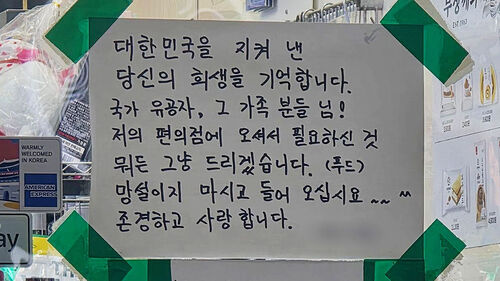 대한민국을 지켜 낸
당신의 희생을 기억합니다.
국가 유공자, 그 가족 분들 님!
저의 편의점에 오셔서 필요하신 것
뭐든 그냥 드리겠습니다. (푸드)
망설이지 마시고 들어 오십시요~~ ^^
존경하고 사랑합니다.
WARMLY
WELCOMED
IN KOREA
AMERICAN
EXPRESS
Pay